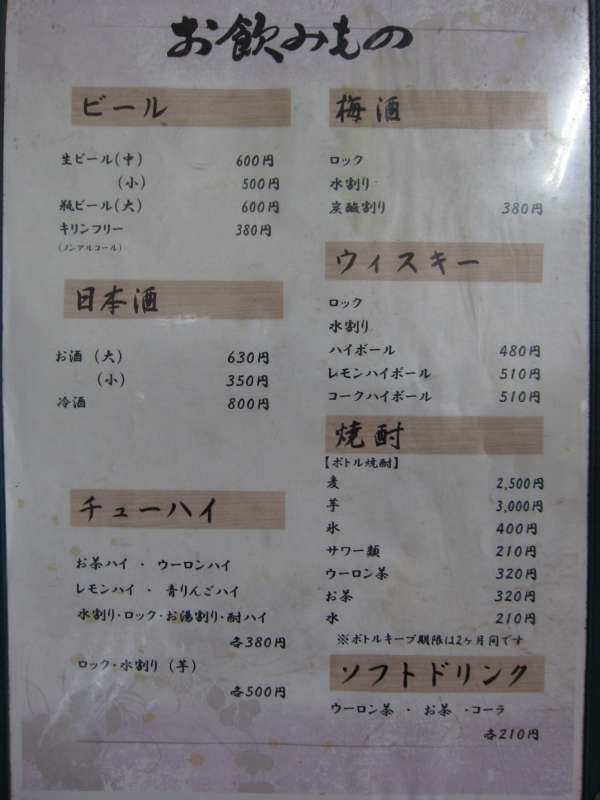 お飲みもの
ビール
生ビール(中) 600円
(小) 500円
瓶ビール(大) 600円
キリンフリー 380円
(ノンアルコール)
日本酒
お酒 (大) 630円
(小) 350円
冷酒 800円
チューハイ
お茶ハイ ・ ウーロンハイ
レモンハイ ・ 青りんごハイ
水割り・ロック・お湯割り・酎ハイ
各380円
ロック・水割り (芋)
各500円
梅酒
ロック
水割り
炭酸割り 380円
ウィスキー
ロック
水割り
ハイボール 480円
レモンハイボール 510円
コークハイボール 510円
焼酎
【ボトル焼酎】
麦 2,500円
芋 3,000円
氷 400円
サワー類 210円
ウーロン茶 320円
お茶 320円
水 210円
※ボトルキープ期限は2ヶ月間です
ソフトドリンク
ウーロン茶 ・ お茶 ・コーラ
各210円